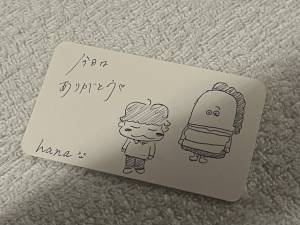 今日は
ありがとう♡
hana